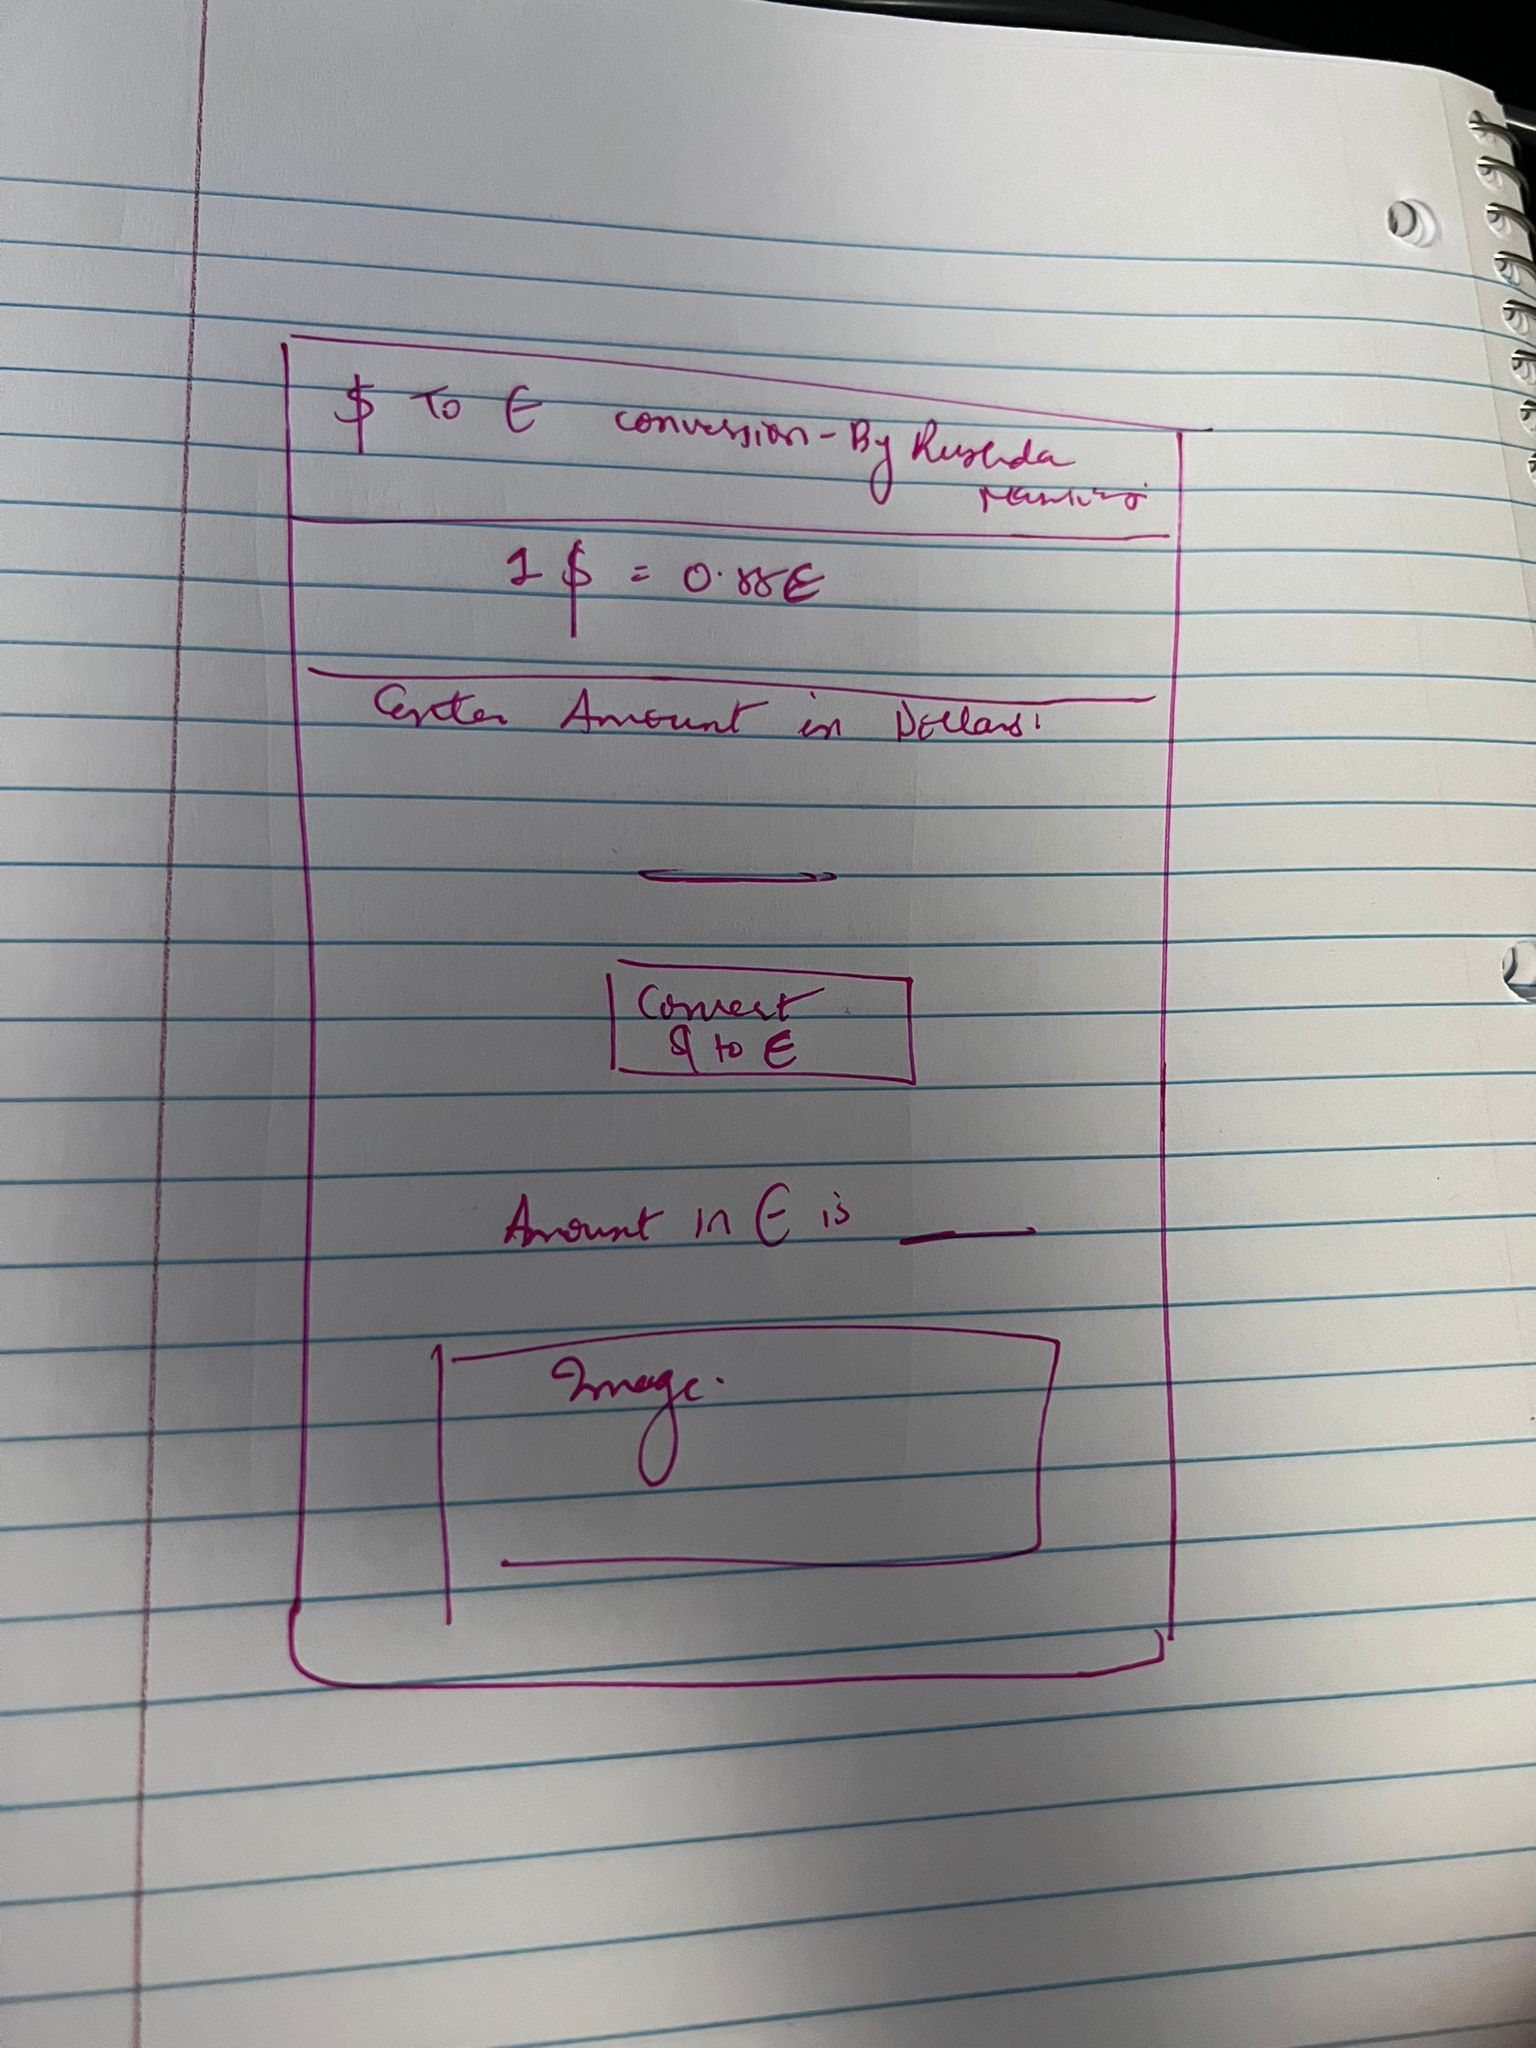 $ To € conversion - By Rushda
1 $ = 0.88€
Enter Amount in Dollars:
Convert
$ to €
Amount in € is
Image.